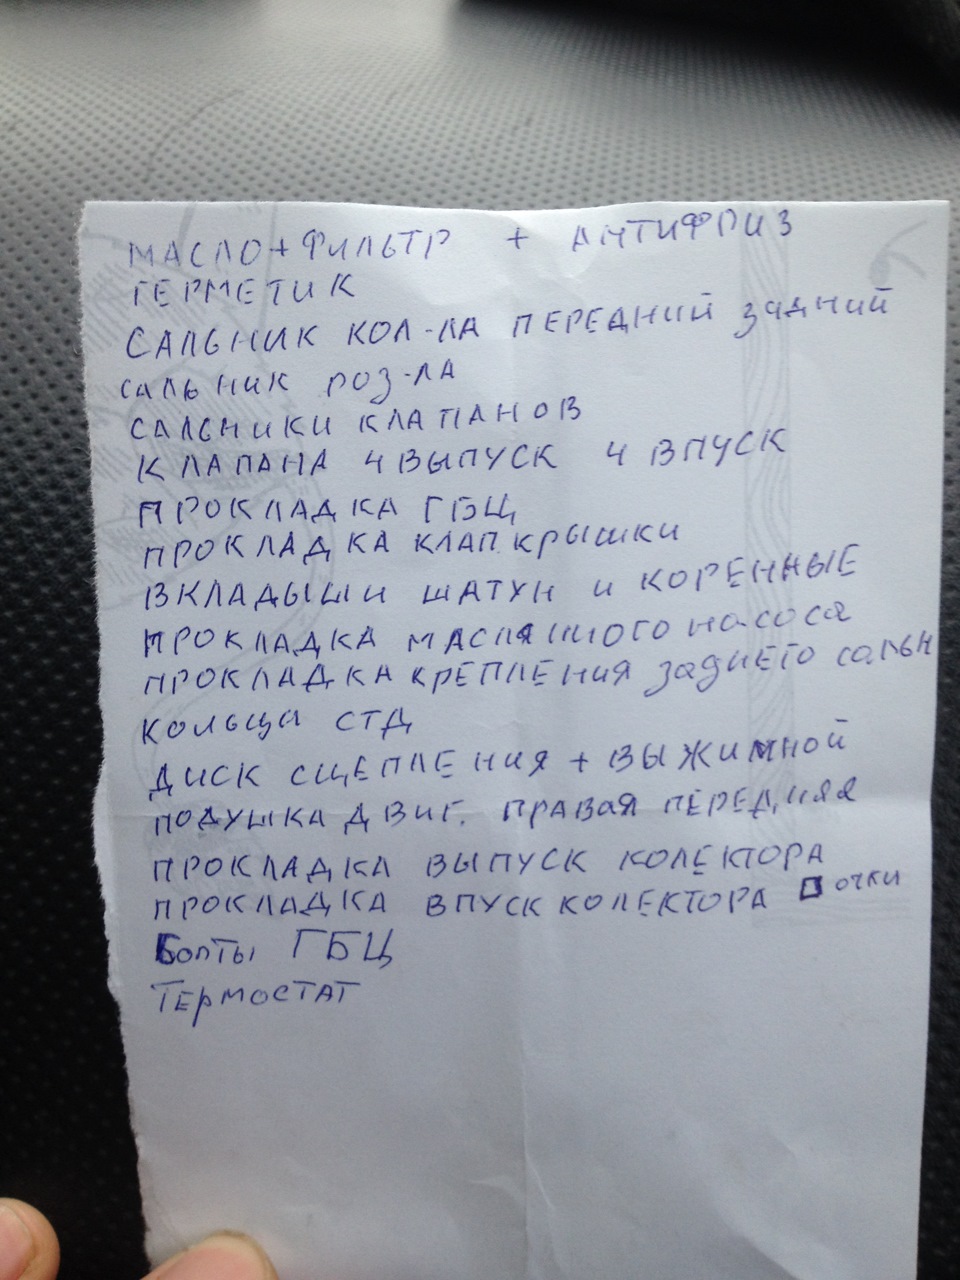 МАСЛО+ФИЛЬТР + АНТИФРИЗ
ГЕРМЕТИК
САЛЬНИК КОЛ-ЛА ПЕРЕДНИЙ ЗАДНИЙ
САЛЬНИК РОЗ-ЛА
САЛЬНИКИ КЛАПАНОВ
КЛАПАНА 4 ВЫПУСК 4 ВПУСК
ПРОКЛАДКА ГБЦ
ПРОКЛАДКА КЛАП. КРЫШКИ
ВКЛАДЫШИ ШАТУН И КОРЕННЫЕ
ПРОКЛАДКА МАСЛЯННОГО НАСОСА
ПРОКЛАДКА КРЕПЛЕНИЯ ЗАДНЕГО САЛЬН
КОЛЬЦА СТД
ДИСК СЦЕПЛЕНИЯ + ВЫЖИМНОЙ
ПОДУШКА ДВИГ. ПРАВАЯ ПЕРЕДНЯЯ
ПРОКЛАДКА ВЫПУСК КОЛЕКТОРА
ПРОКЛАДКА ВПУСК КОЛЕКТОРА □ ОЧКИ
БОЛТЫ ГБЦ
ТЕРМОСТАТ